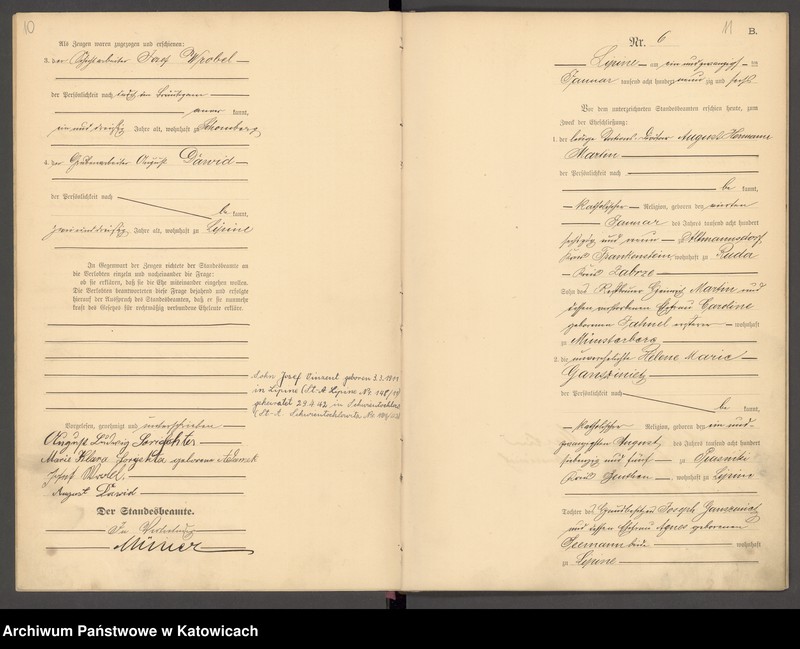 10
Als Zeugen waren zugezogen und erschienen:
3. der Josef Wrobel
der Persönlichkeit nach durch den Bräutigam
kannt,
ein und dreißig Jahre alt, wohnhaft zu Schomberg,
4. der Grubenarbeiter August Dawid
der Persönlichkeit nach
be kannt,
zwei und dreißig Jahre alt, wohnhaft zu Lipine
In Gegenwart der Zeugen richtete der Standesbeamte an
die Verlobten einzeln und nacheinander die Frage:
ob sie erklären, daß sie die Ehe miteinander eingehen wollen.
Die Verlobten beantworteten diese Frage bejahend und erfolgte
hierauf der Ausspruch des Standesbeamten, daß er sie nunmehr
kraft des Gesetzes für rechtmäßig verbundene Eheleute erkläre.
Sohn Josef Vincent geboren 1911
in Lipine (St. A. Lipine No 148/11)
geheiratet 29.4.42 in Schwientochlowitz
(St. A. Schwientochlowitz No
Vorgelesen, genehmigt und unterschrieben
August Ludwig
Marie Klara geborene
Josef Wrobel.
August Dawid
Der Standesbeamte.
In Vertretung
11
B.
Nr. 6
Lipine am ein und zwanzigsten
Januar tausend acht hundert neun zig und sechs
Vor dem unterzeichneten Standesbeamten erschien heute, zum
Zweck der Eheschließung:
1. der ledige August Hermann
Marten
der Persönlichkeit nach
be kannt,
katholischer Religion, geboren den vierten
Januar des Jahres tausend acht hundert
sechszig und neun zu Altmannsdorf,
Kreis Frankenstein, wohnhaft zu Ruda
Kreis Zabrze
Sohn des Heinrich Marten und
dessen verstorbenen Ehefrau Caroline
geborenen wohnhaft
zu Münsterberg
2. die unverehelichte Helene Maria
Ganszinietz
der Persönlichkeit nach
be kannt,
katholischer Religion, geboren den ein und
zwanzigsten August des Jahres tausend acht hundert
siebenzig und fünf zu
Kreis Beuthen, wohnhaft zu Lipine
Tochter des Joseph Ganszinietz
und dessen Ehefrau Agnes geborenen
Seemann beide wohnhaft
zu Lipine
Archiwum Państwowe w Katowicach